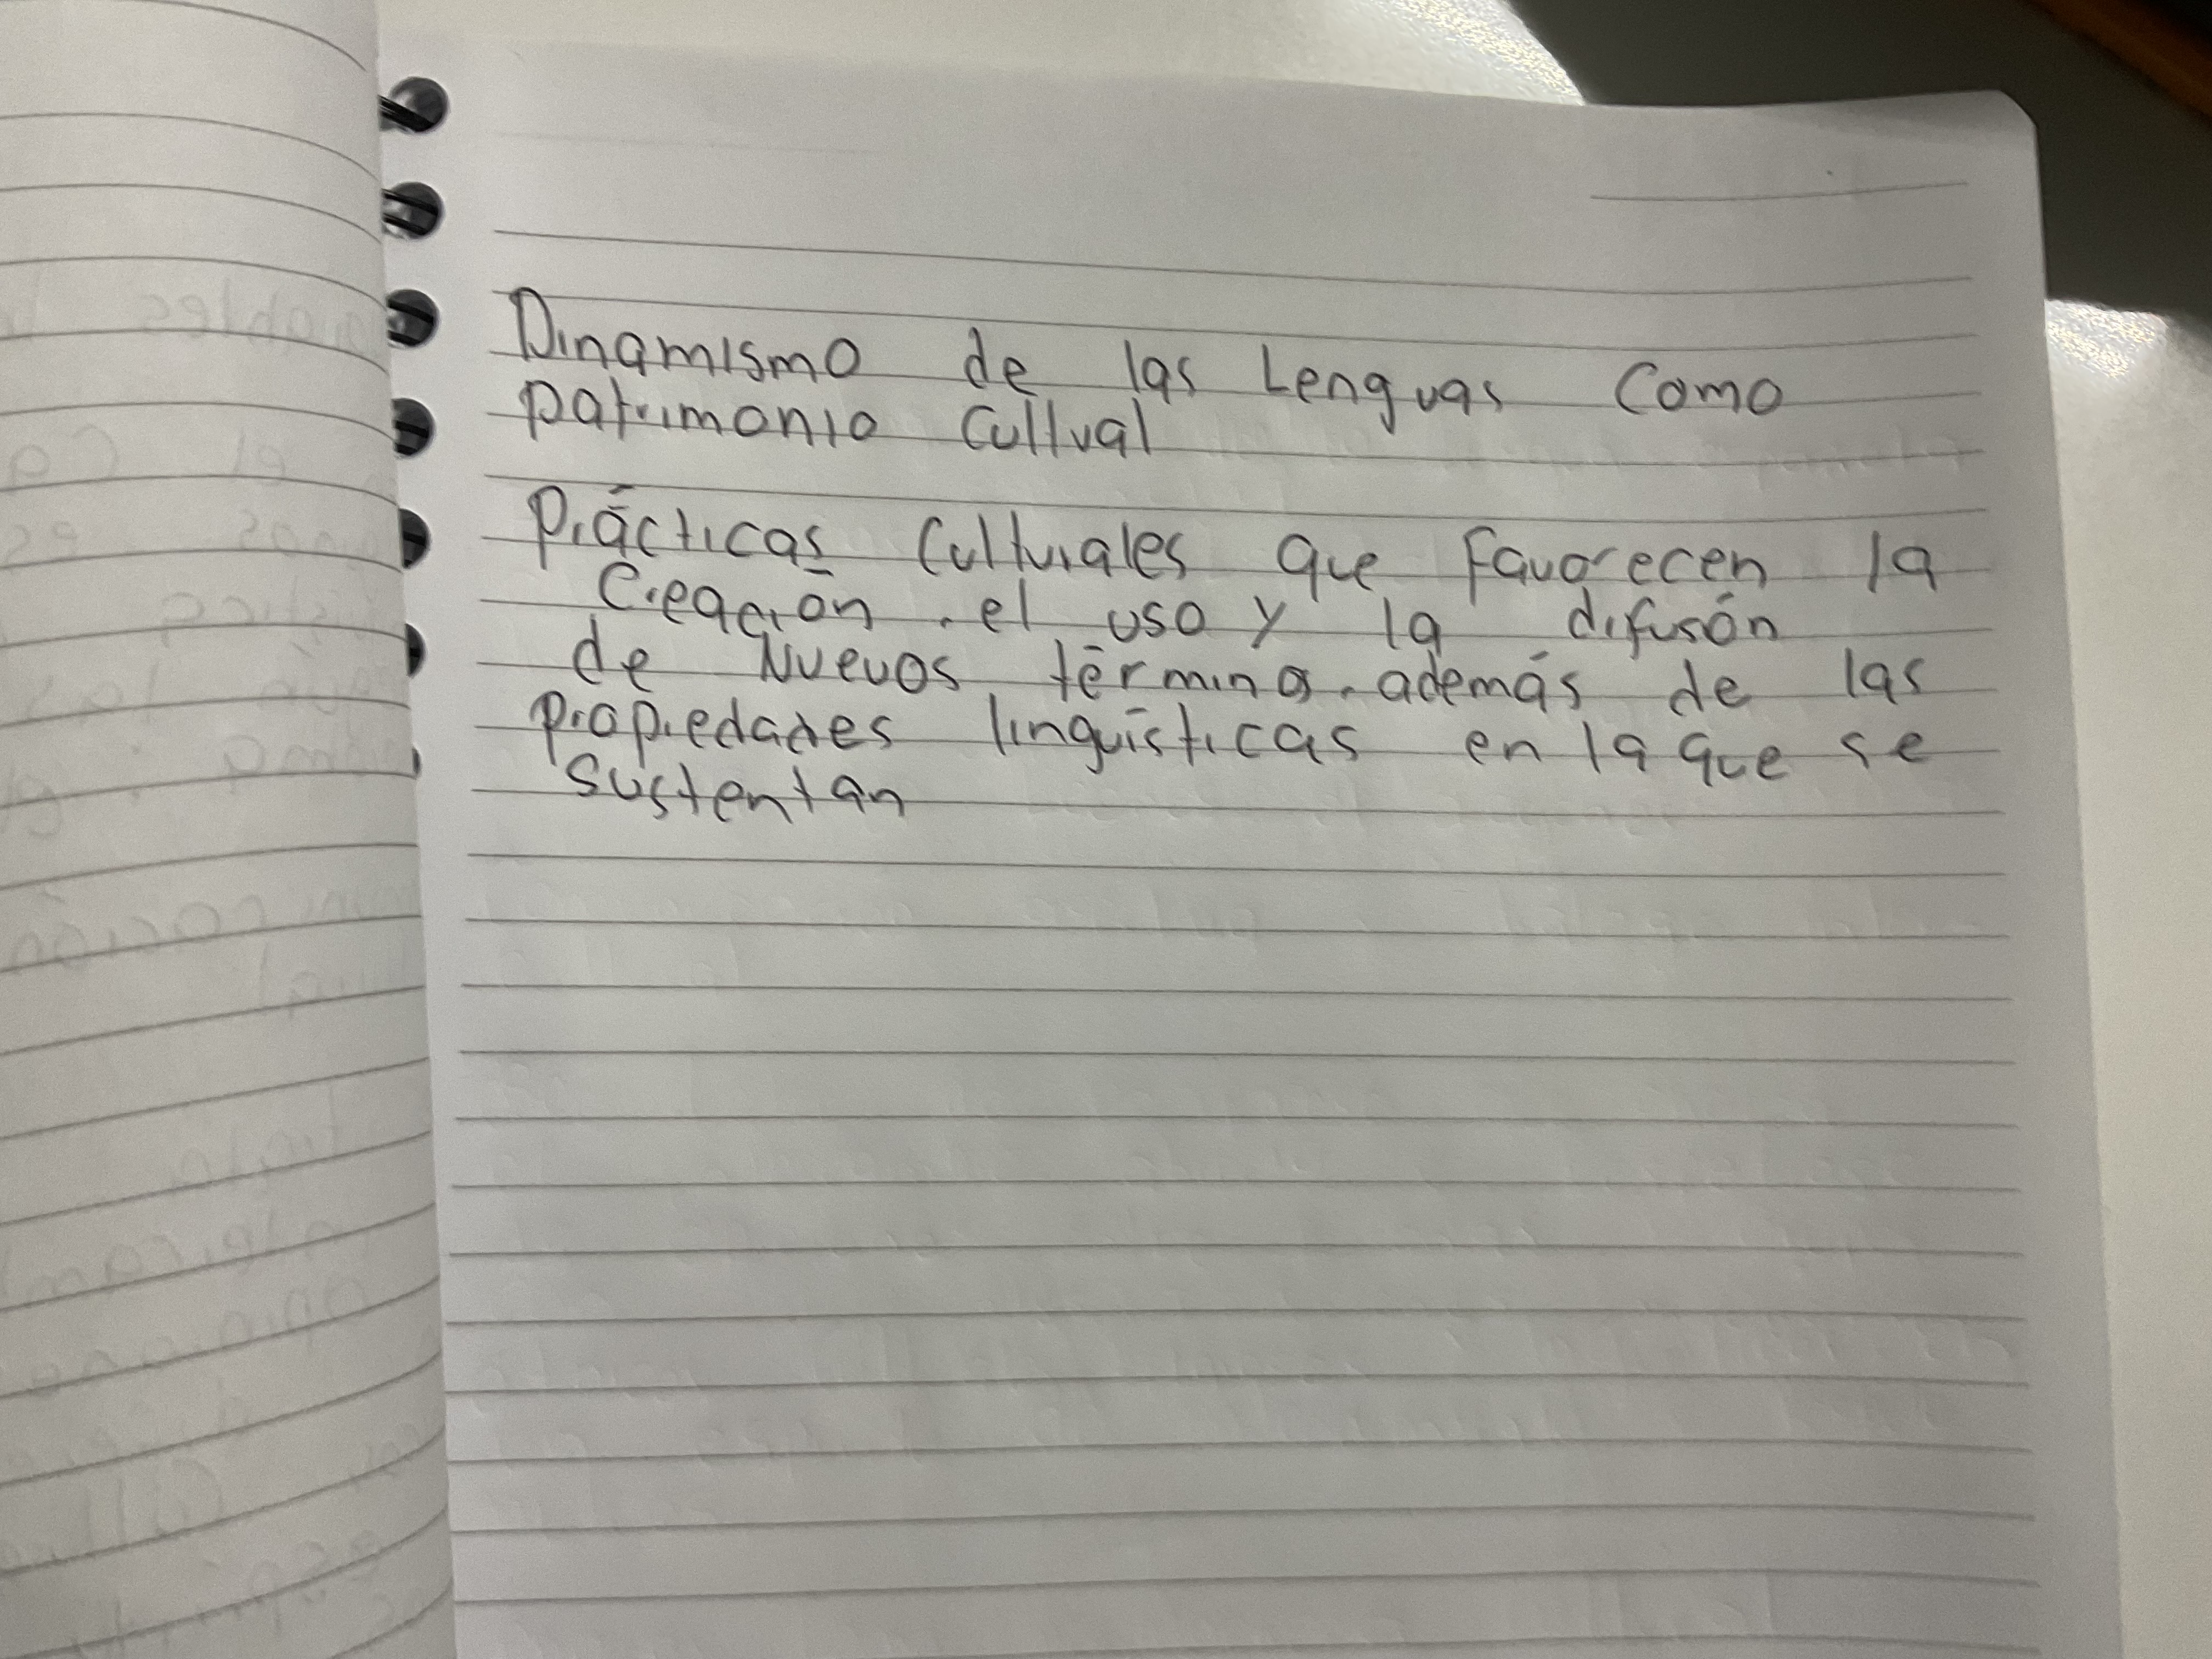 Dinamismo de las Lenguas como
patrimonio Cultual
Prácticas Culturales que favorecen la
Creación, el uso y la difusón
de Nuevos términos, además de las
propiedades lingüísticas en la que se
sustentan